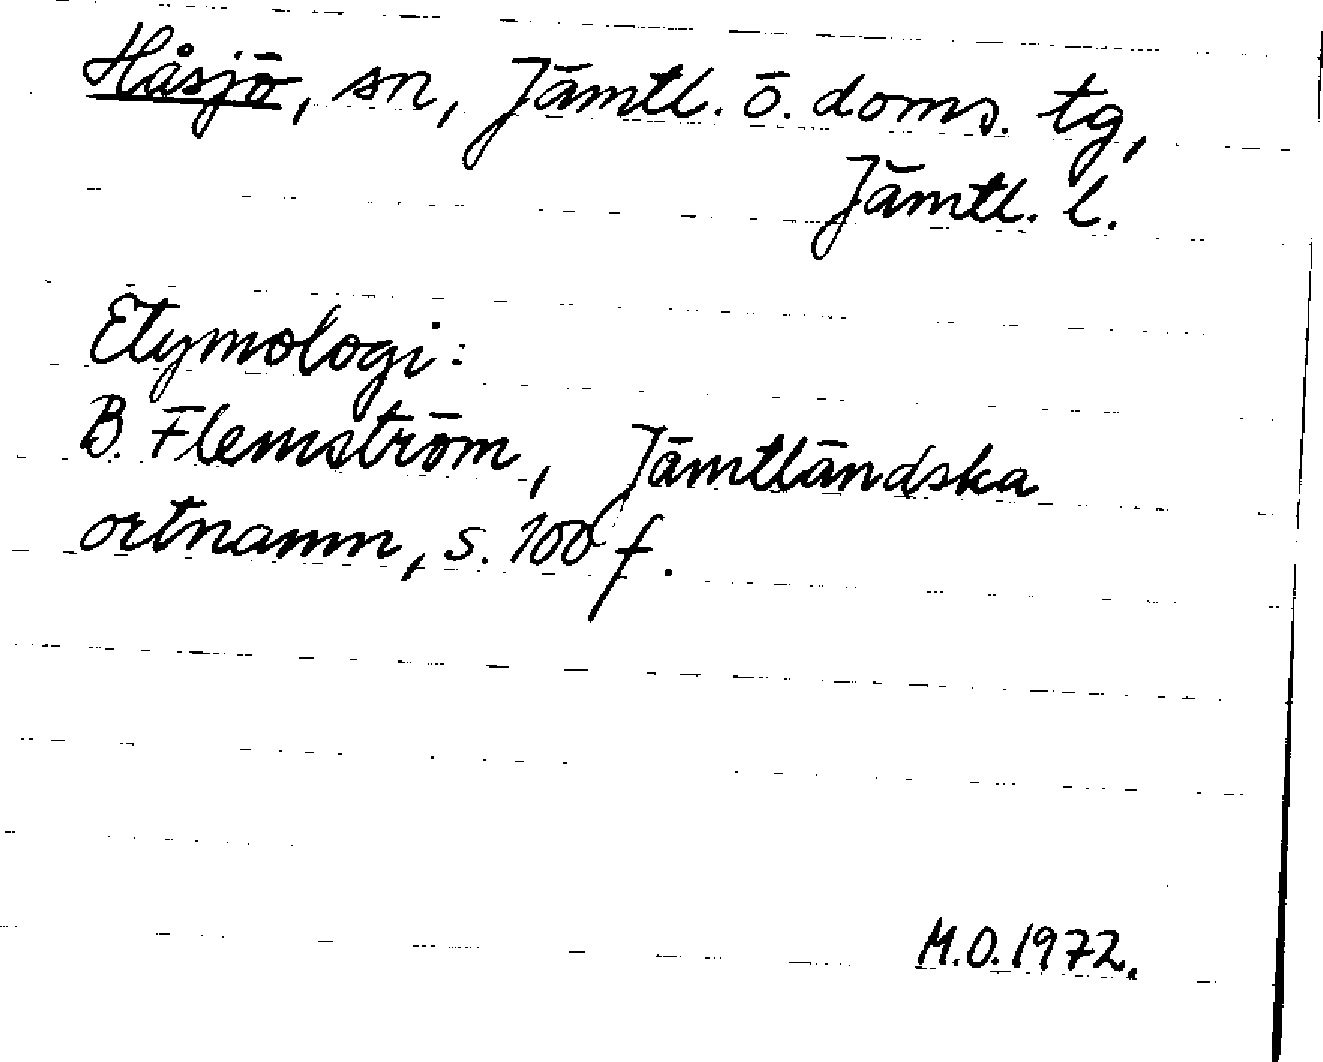 Håsjö, sn, Jämtl. ö. doms. tg,
Jämtl. l.
Etymologi:
B. Flemström, Jämtländska
ortnamn, s. 100 f.
M.O. 1972.